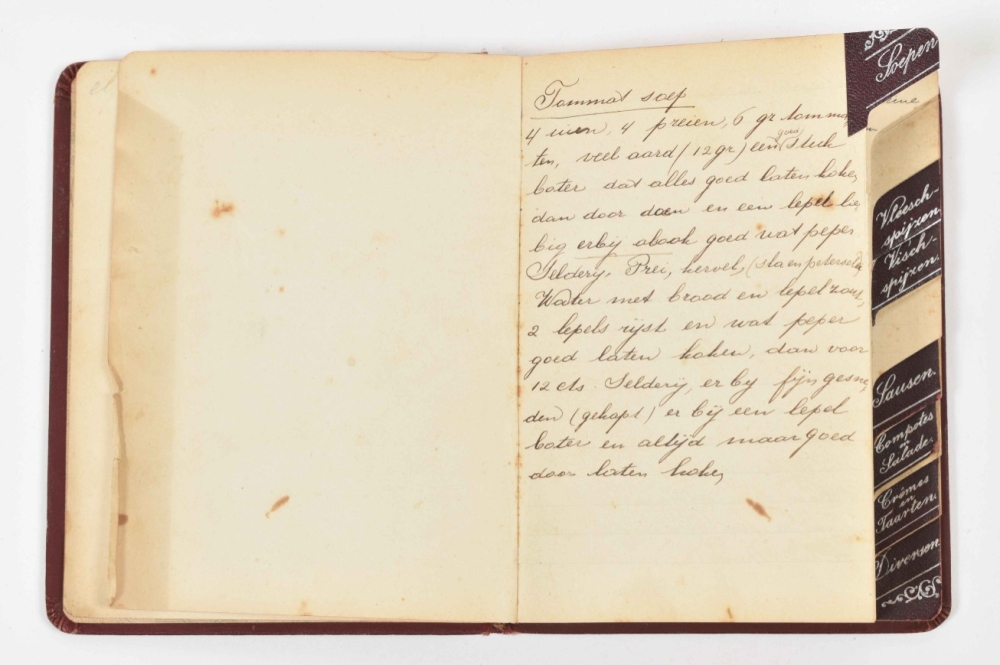 Tommat soep
4 uien, 4 preien, 6 gr tomma
ten, veel aard (12 gr) een goed stuk
boter dat alles goed laten koke,
dan door doen en een lepel lie
big erbij alsook goed wat peper
Selderij, Prei, kervel, (sla en peterselie
Water met brood en lepel zout,
2 lepels rijst en wat peper
goed laten koken, dan voor
12 cts. Selderij, er bij fijn gesne
den (gehapt) er bij een lepel
boter en altijd maar goed
door laten koke,
Soepen
Vleesch-
spijzen
Visch-
spijzen.
Sausen.
Compotes
en
Salade.
Crêmes
en
Taarten.
Diversen.